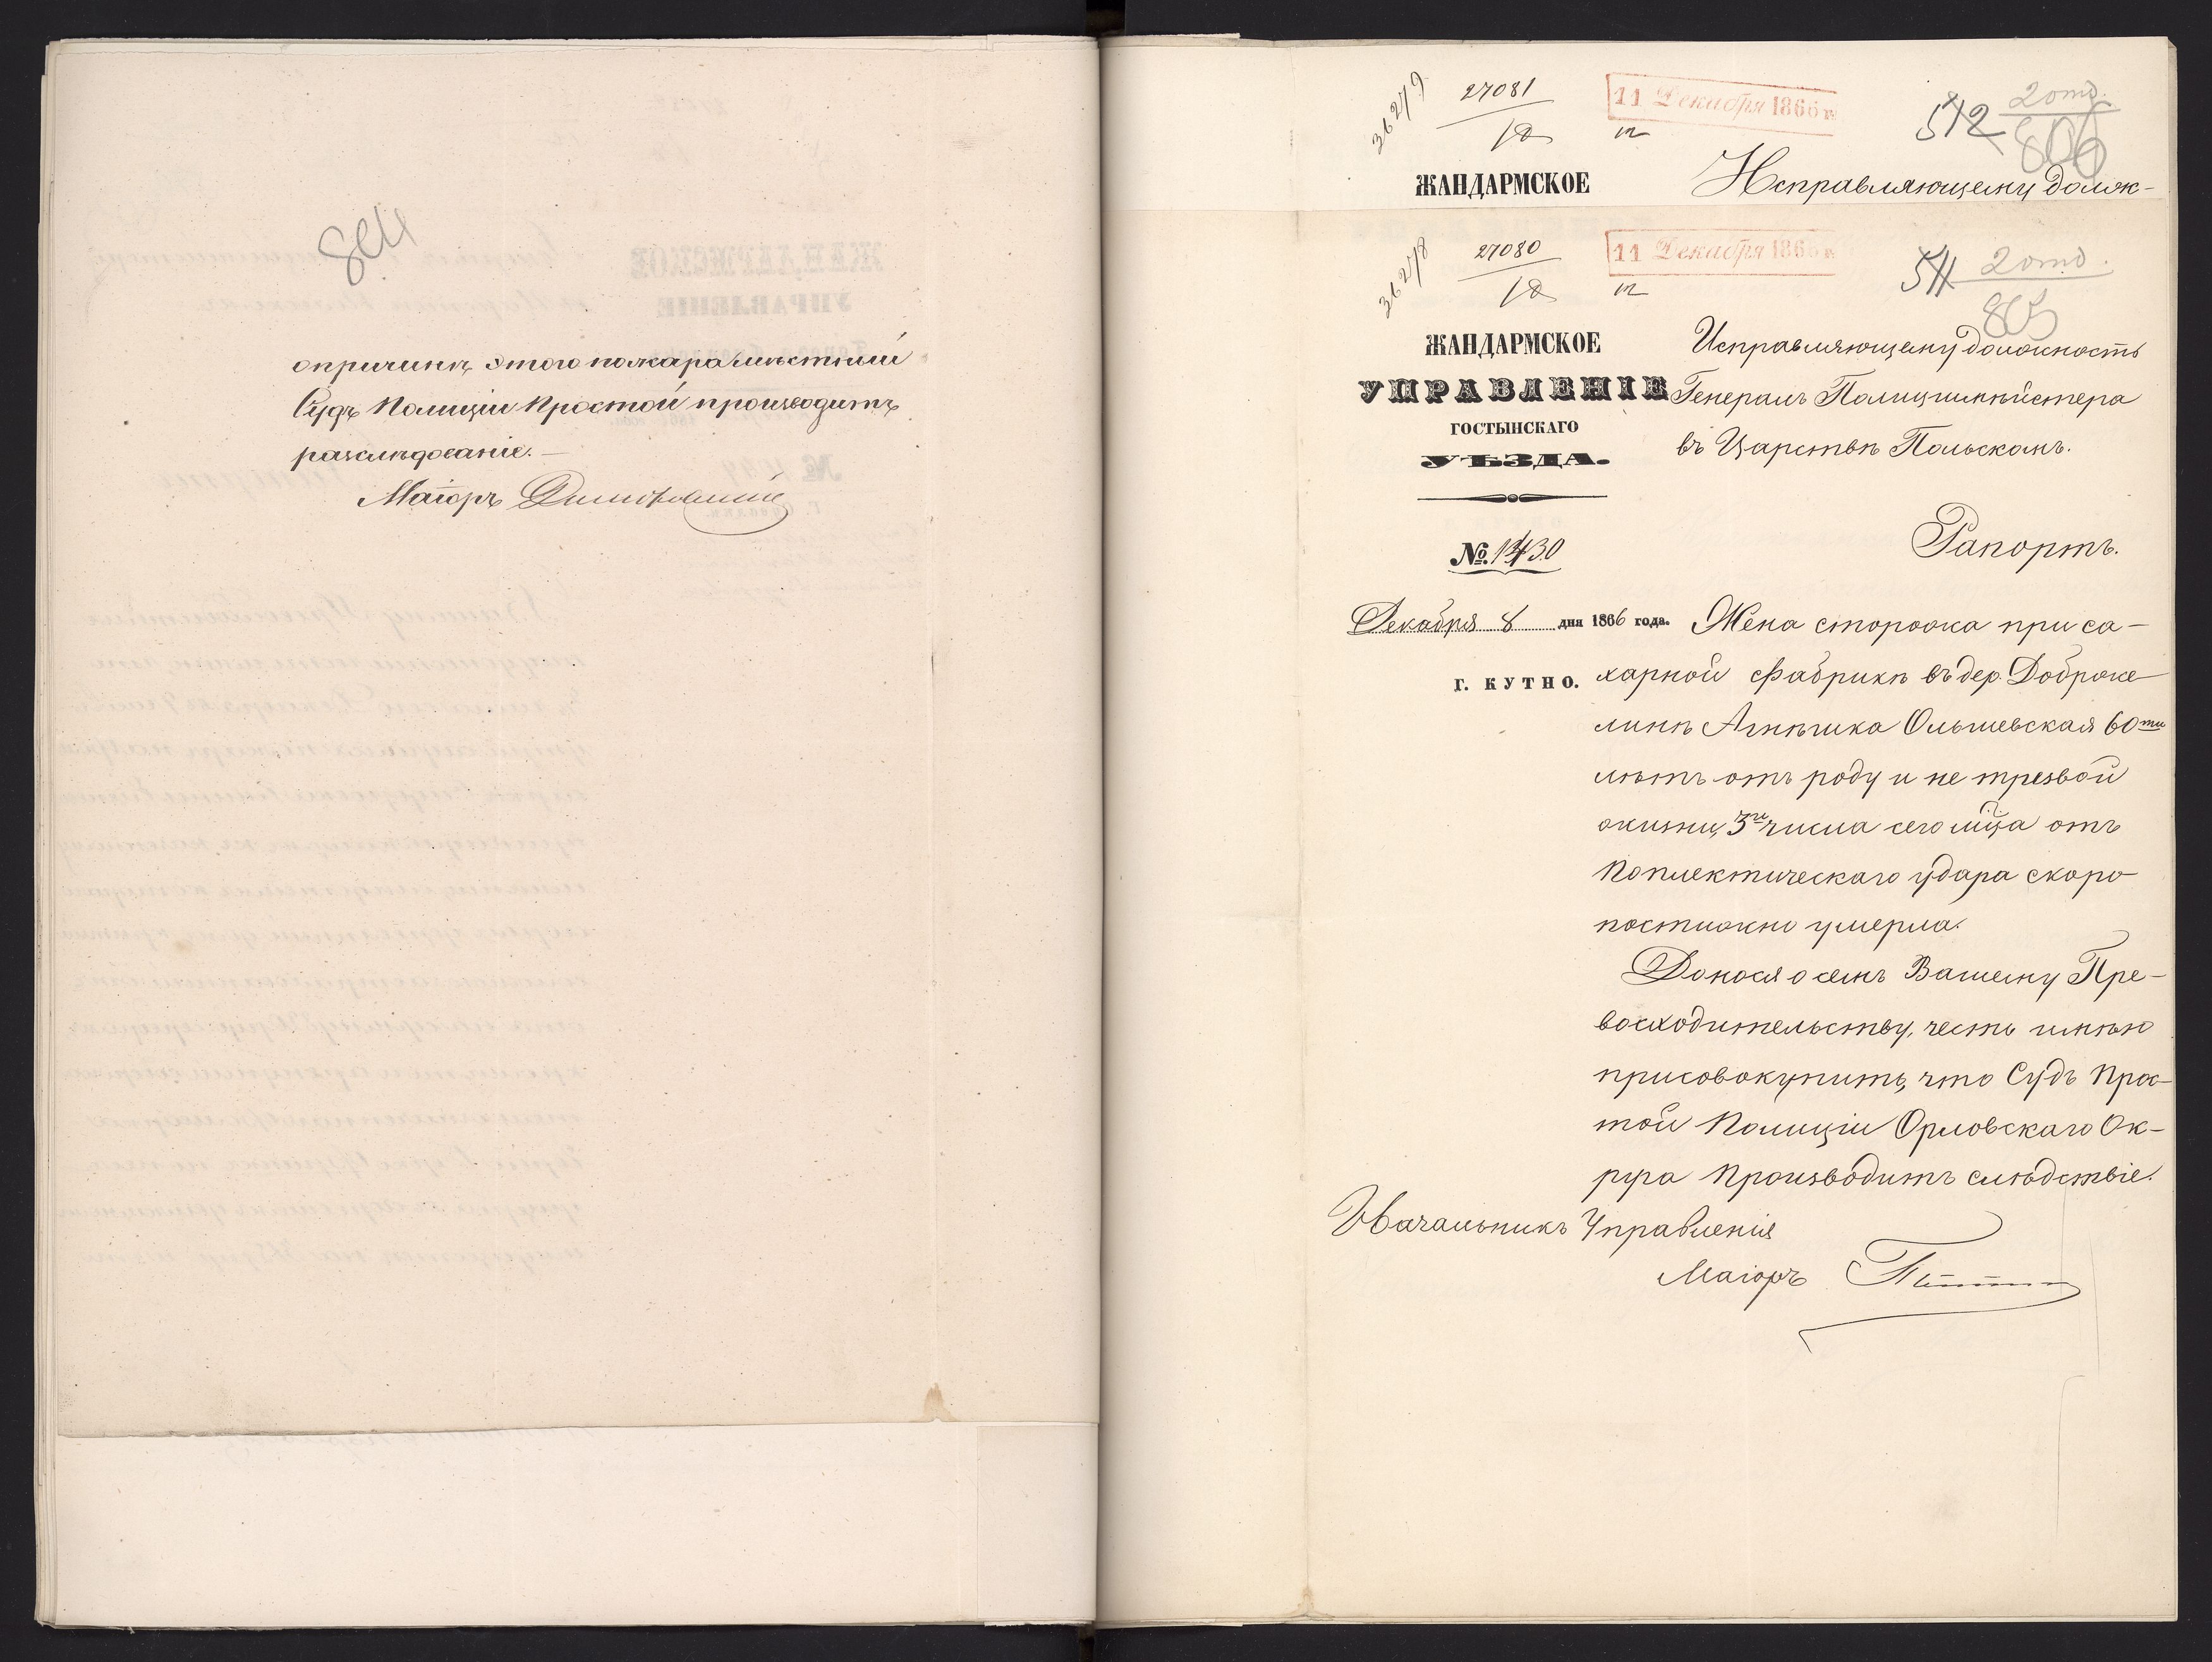 804
о причинѣ этого пожара мѣстный
Судъ Полиціи Простой производитъ
разслѣдованіе. —
Маіоръ
36279
27081
12
11 Декабря 1866 г.
512
2 отд.
806
ЖАНДАРМСКОЕ
Исправляющему долж-
36278
27080
12
11 Декабря 1866 г.
511
2 отд.
805
ЖАНДАРМСКОЕ
УПРАВЛЕНІЕ
ГОСТЫНСКАГО
УѢЗДА.
Исправляющему должность
Генералъ Полиціймейстера
въ Царствѣ Польскомъ.
№ 1430
Рапортъ.
Декабря 8 дня 1866 года.
г. КУТНО.
Жена сторожа при са-
харной фабрикѣ въ дер. Доброже-
линѣ Агнѣшка Ольшевская 60ти
лѣтъ отъ роду и не трезвой
жизни, 3го числа сего мца отъ
Поплектическаго удара скоро-
постижно умерла.
Донося о семъ Вашему Пре-
восходительству, честь имѣю
присовокупить, что Судъ Прос-
той Полиціи Орловскаго Ок-
руга производитъ слѣдствіе.
Начальникъ Управленія
Маіоръ